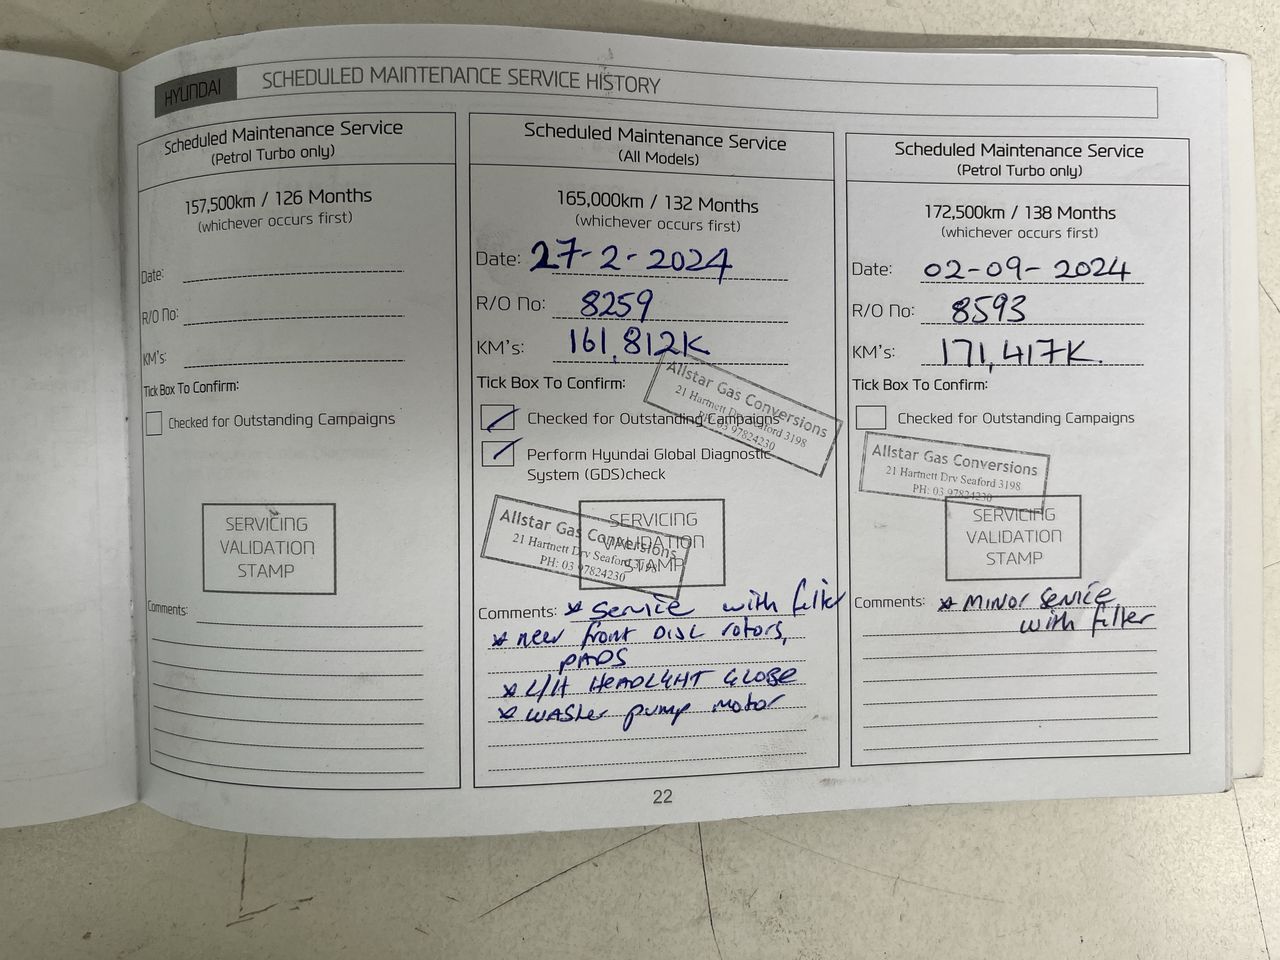 HYUNDAI
SCHEDULED MAINTENANCE SERVICE HISTORY
Scheduled Maintenance Service
(Petrol Turbo only)
157,500km / 126 Months
(whichever occurs first)
Date:
R/O No:
KM's:
Tick Box To Confirm:
Checked for Outstanding Campaigns
SERVICING
VALIDATION
STAMP
Comments:
Scheduled Maintenance Service
(All Models)
165,000km / 132 Months
(whichever occurs first)
Date: 27-2-2024
R/O No: 8259
KM's: 161,812K
Tick Box To Confirm:
Allstar Gas Conversions
21 Hartnett Drv Seaford 3198
PH: 03 97824230
Checked for Outstanding Campaigns
Perform Hyundai Global Diagnostic
System (GDS)check
Allstar Gas Conversions
21 Hartnett Drv Seaford 3198
PH: 03 97824230
SERVICING
VALIDATION
STAMP
Comments: * Service with filter
* new front DISC rotors,
PADS
* L/H HEADLIGHT GLOBE
* WASHer pump motor
Scheduled Maintenance Service
(Petrol Turbo only)
172,500km / 138 Months
(whichever occurs first)
Date: 02-09-2024
R/O No: 8593
KM's: 171,417K.
Tick Box To Confirm:
Checked for Outstanding Campaigns
Allstar Gas Conversions
21 Hartnett Drv Seaford 3198
PH: 03 97824230
SERVICING
VALIDATION
STAMP
Comments: * MINOR Service
with filter
22